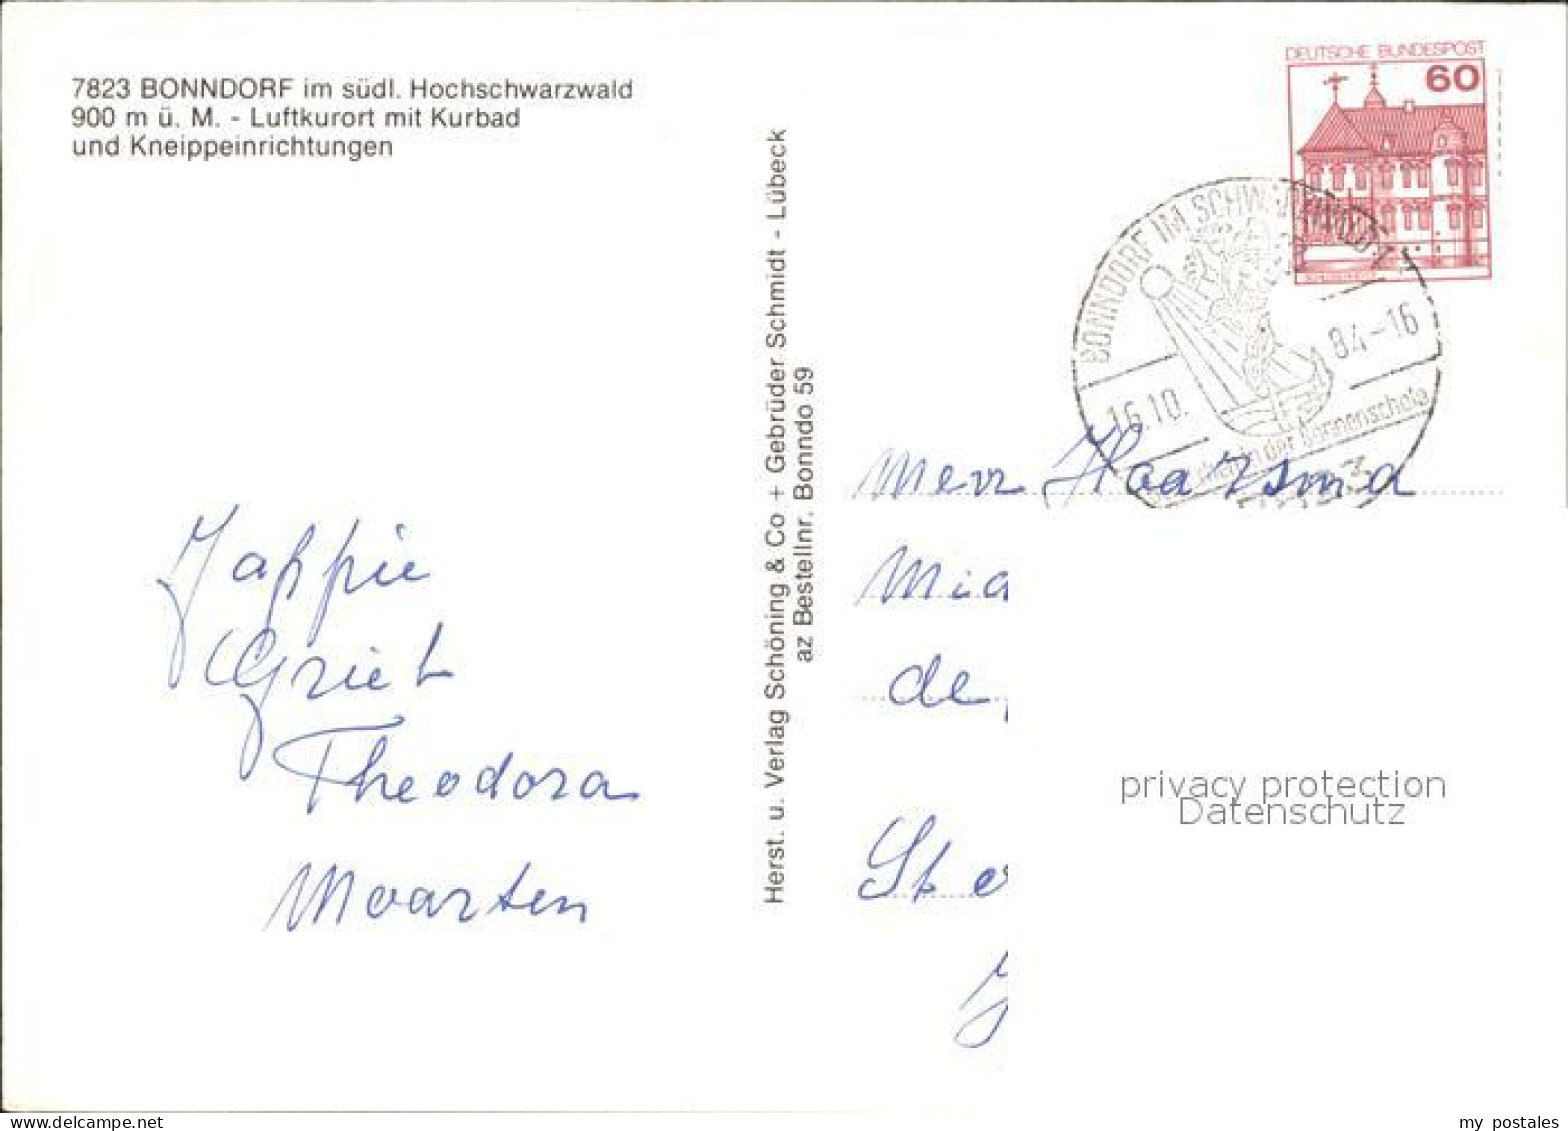 7823 BONNDORF im südl. Hochschwarzwald
900 m ü. M. - Luftkurort mit Kurbad
und Kneippeinrichtungen
Jappie
Griet
Theodora
Maarten
Herst. u. Verlag Schöning & Co + Gebrüder Schmidt - Lübeck
az Bestellnr. Bonndo 59
DEUTSCHE BUNDESPOST
60
BONNDORF IM SCHWARZWALD
16.10. 84-16
in der Sonnenschale
Haarsma
Mia
de
privacy protection
Datenschutz
my postales
www.delcampe.net